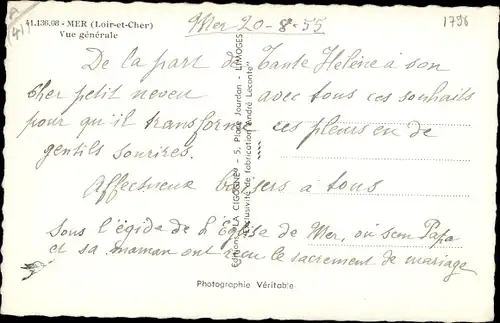 41.136.08 - MER (Loir-et-Cher)
Vue générale
Mer 20-8-55
1798
De la part de Tante Hélène à son
cher petit neveu avec tous ces souhaits
pour qu'il transforme ces pleurs en de
gentils sourires.
Affectueux baisers à tous
Sous l'égide de l'Eglise de Mer, où son Papa
et sa maman ont reçu le sacrement de mariage
Editions "LA CIGOGNE" - 5, Place Jourdan - LIMOGES
"Exclusivité de fabrication André Leconte"
Photographie Véritable